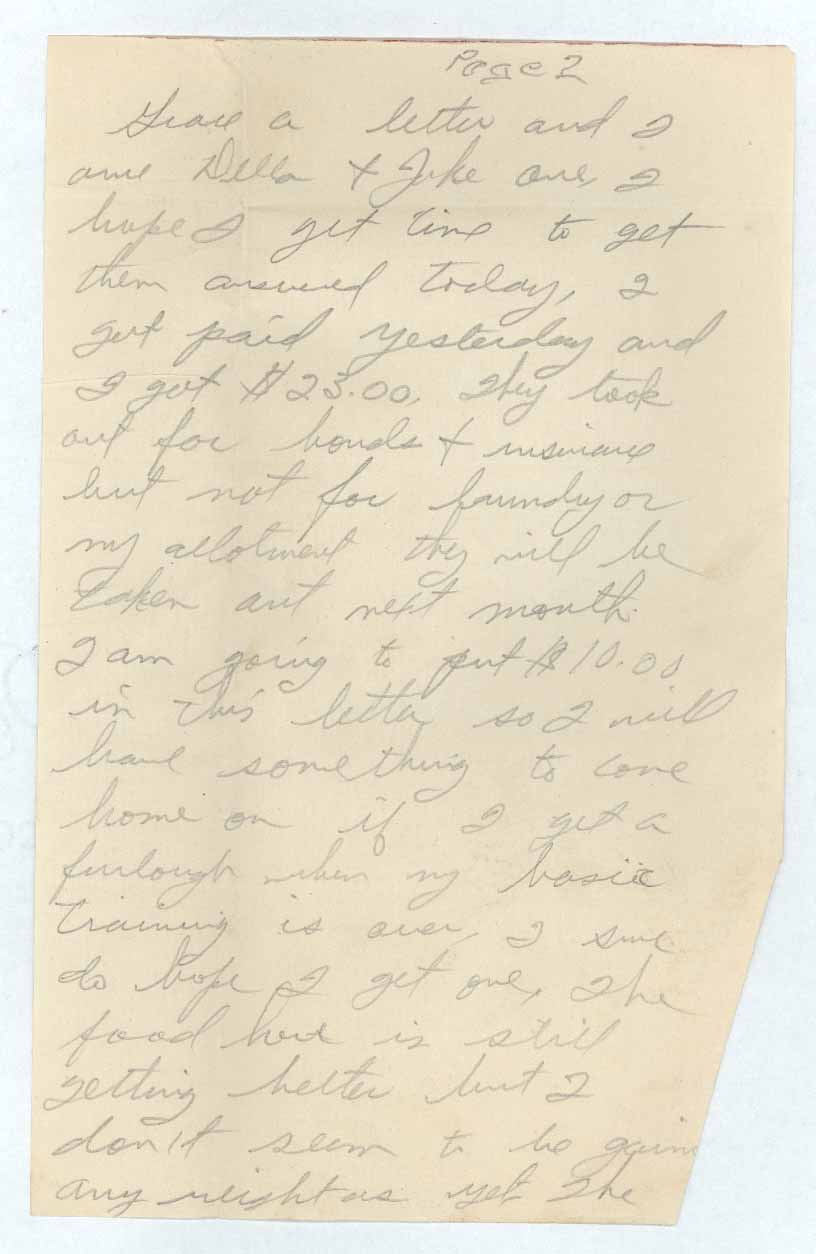 Page 2
Grace a letter and I
owe Della & Jake one, I
hope I get time to get
them answered today, I
got paid yesterday and
I got $23.00. They took
out for bonds & insurance
but not for laundry or
my allotment they will be
taken out next month.
I am going to put $10.00
in this letter so I will
have something to come
home on if I get a
furlough when my basic
training is over, I sure
do hope I get one, The
food here is still
getting better but I
don't seem to be gaining
any weight as yet. The